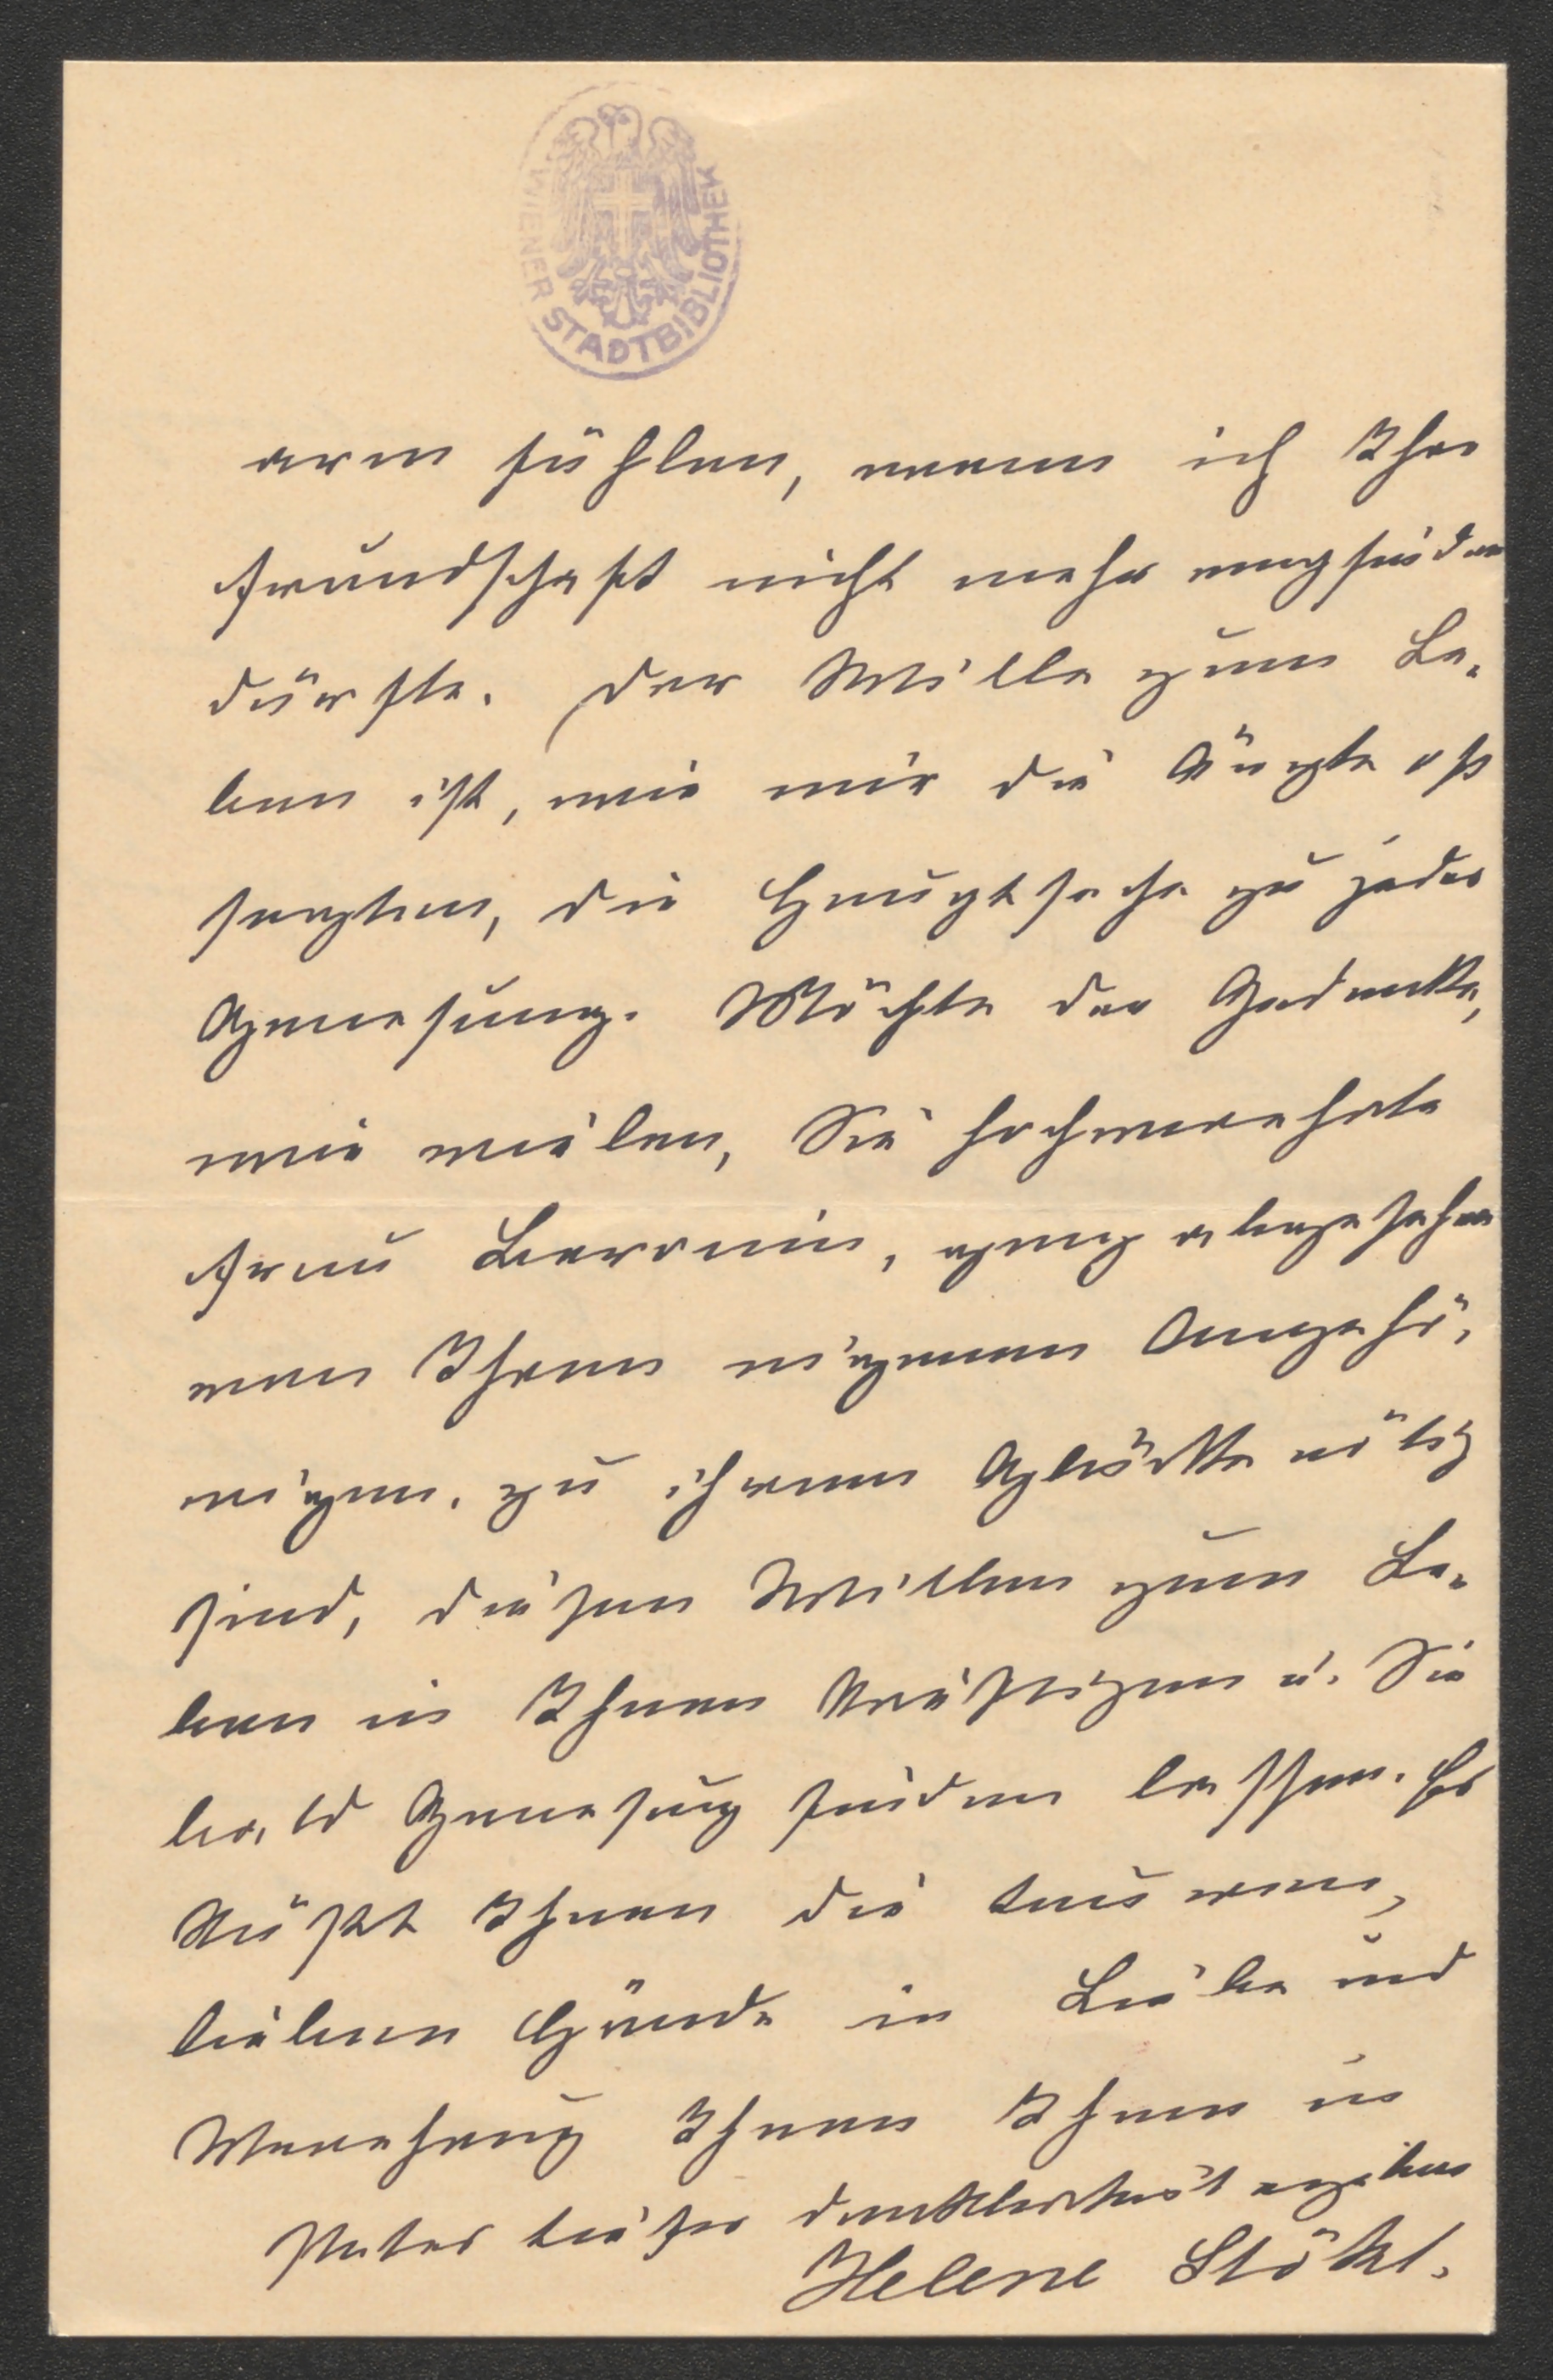 WIENER STADTBIBLIOTHEK
arm fühlen, wenn ich Ihre
Freundschaft nicht mehr empfinden
dürfte. Der Wille zum Le-
ben ist, wie mir die Ärzte oft
sagten, die Hauptsache zu jeder
Genesung. Möchte der Gedanke,
wie vielen, Sie hochverehrte
Frau Baronin, ganz abgesehen
von Ihren eigenen Angehö-
rigen, zu ihrem Glücke nötig
sind, diesen Willen zum Le-
ben in Ihnen kräftigen u. Sie
bald Genesung finden lassen. Es
küßt Ihnen die teuren,
lieben Hände in Liebe und
Verehrung Ihnen Ihnen in
steter tiefer Dankbarkeit ergeben
Helene Stökl.